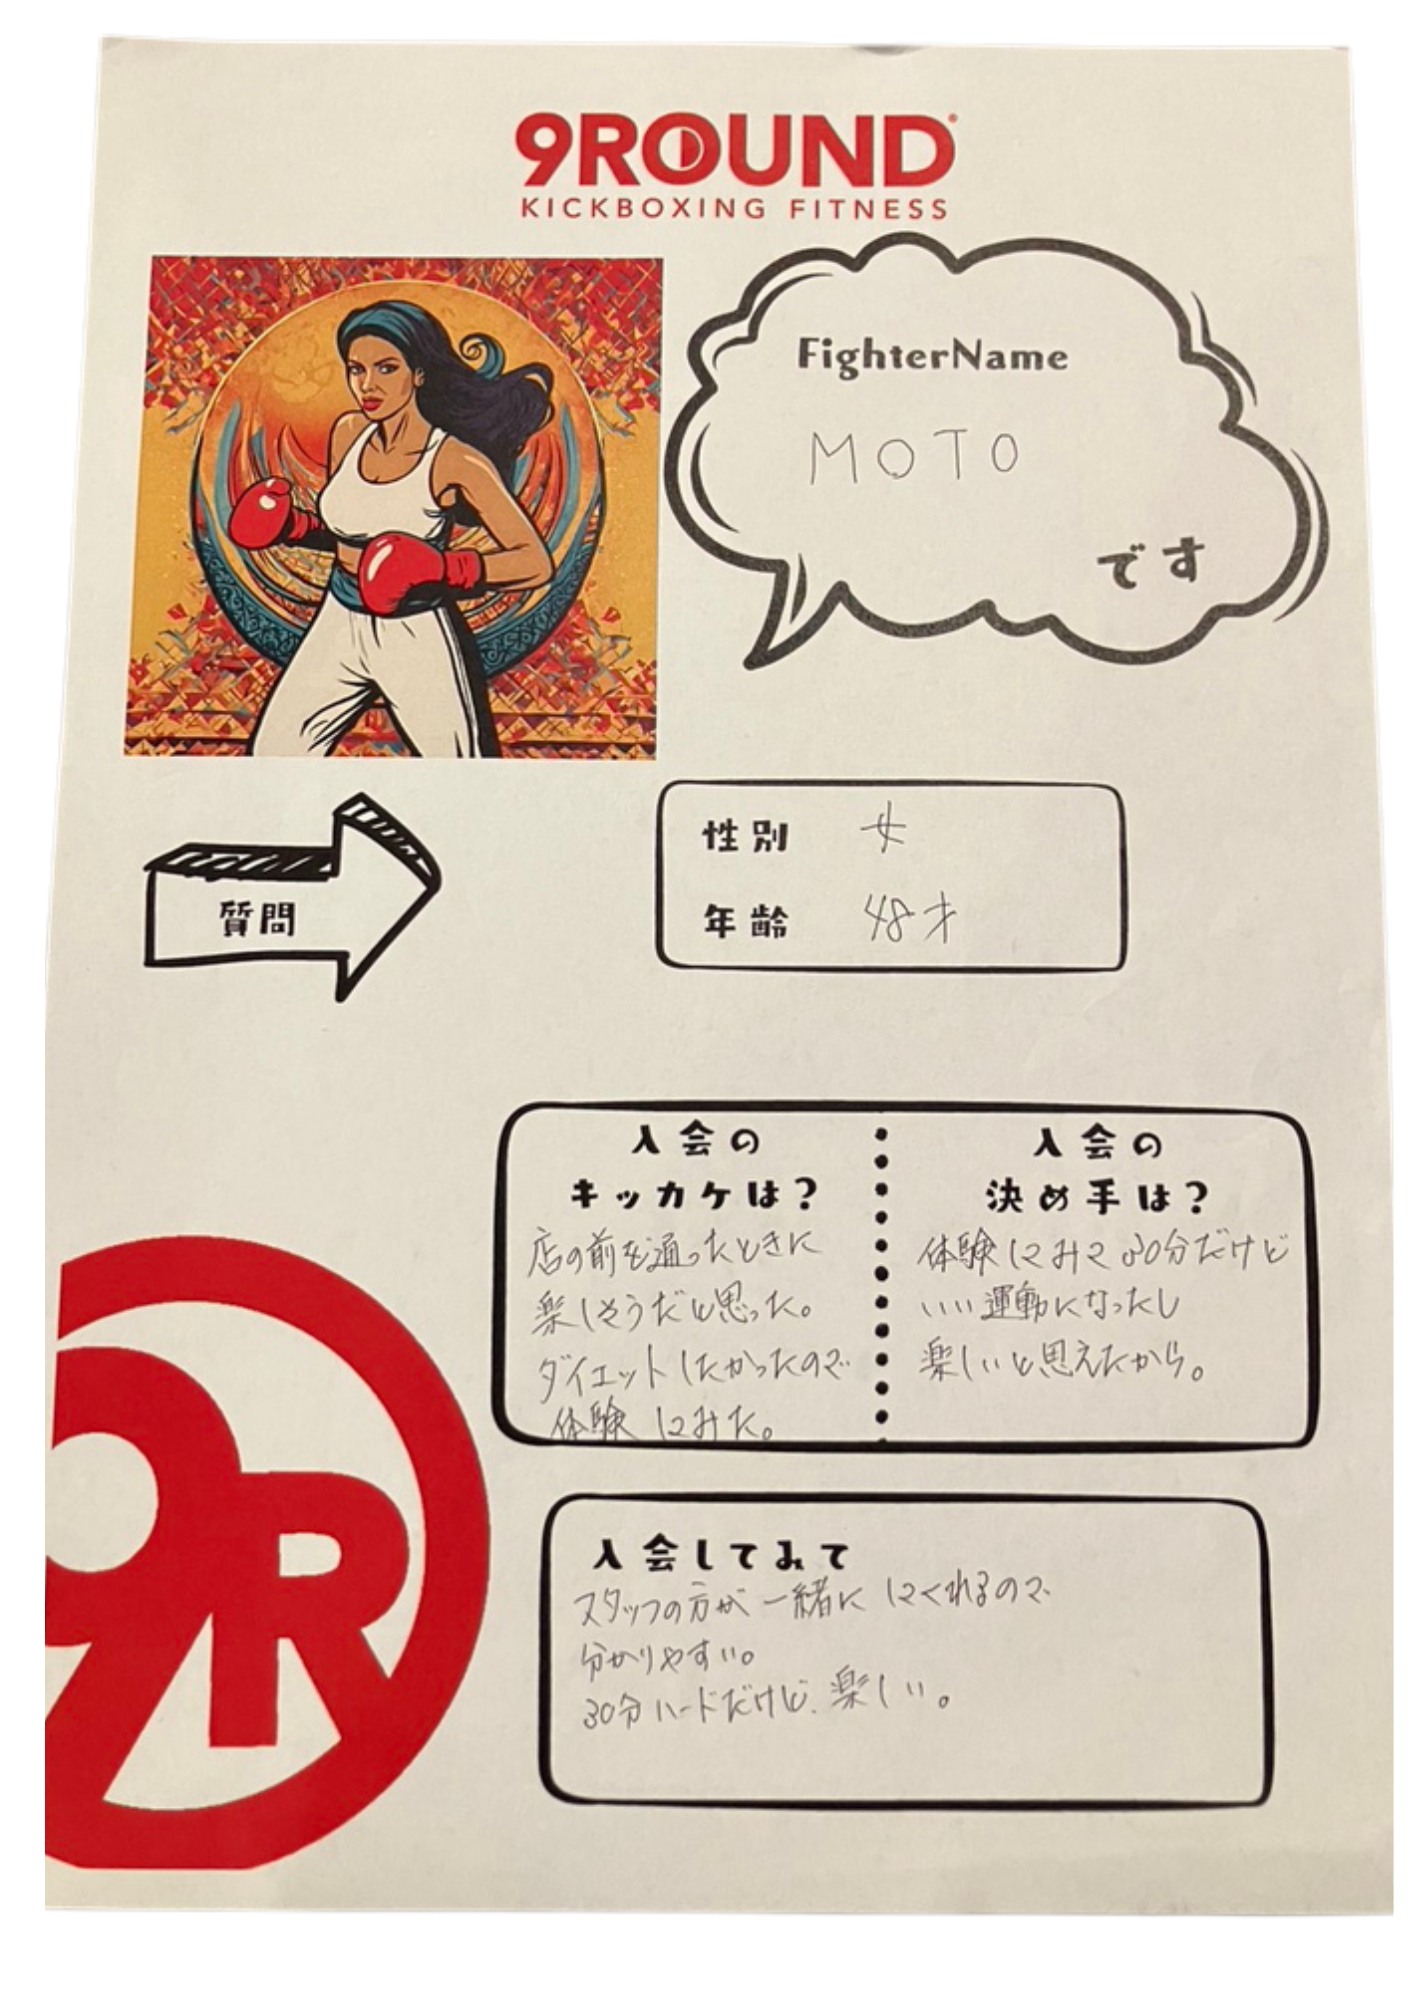 9ROUND
KICKBOXING FITNESS
FighterName
MOTO
です
質問
性別 女
年齢 48才
入会の
キッカケは?
店の前を通ったときに
楽しそうだと思った。
ダイエットしたかったので
体験してみた。
入会の
決め手は?
体験してみて30分だけど
いい運動になったし
楽しいと思えたから。
入会してみて
スタッフの方が一緒にしてくれるので
分かりやすい。
30分ハードだけど、楽しい。
9R